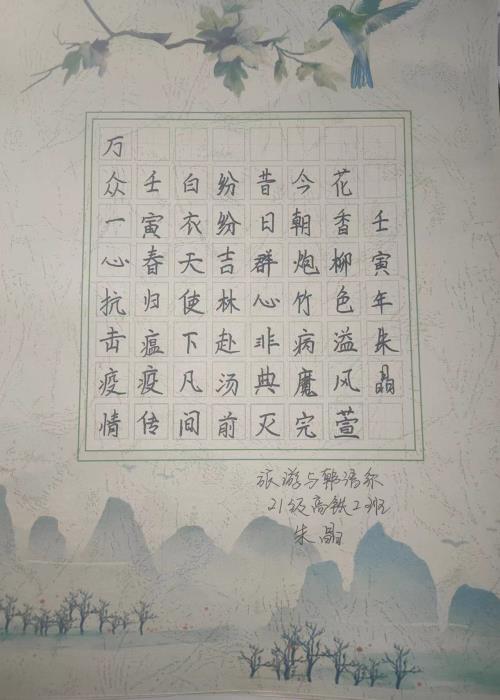 万众一心抗击疫情
壬寅春归瘟疫传
白衣天使下凡间
纷纷吉林赴汤前
昔日群心非典灭
今朝炮竹病魔完
花香柳色溢风萱
壬寅年朱晶
旅游与韩语系
21级高铁2班
朱晶